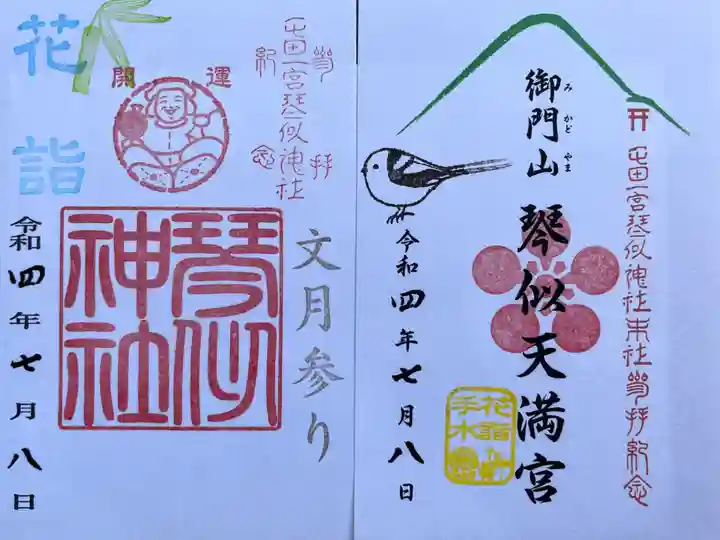 御門山 琴似天満宮
みかどやま
屯田一宮琴似神社末社参拝紀念
令和四年七月八日
花詣
手水
文月参り
参拝
屯田一宮琴似神社
紀念
開運
琴似
神社
花詣
令和四年七月八日